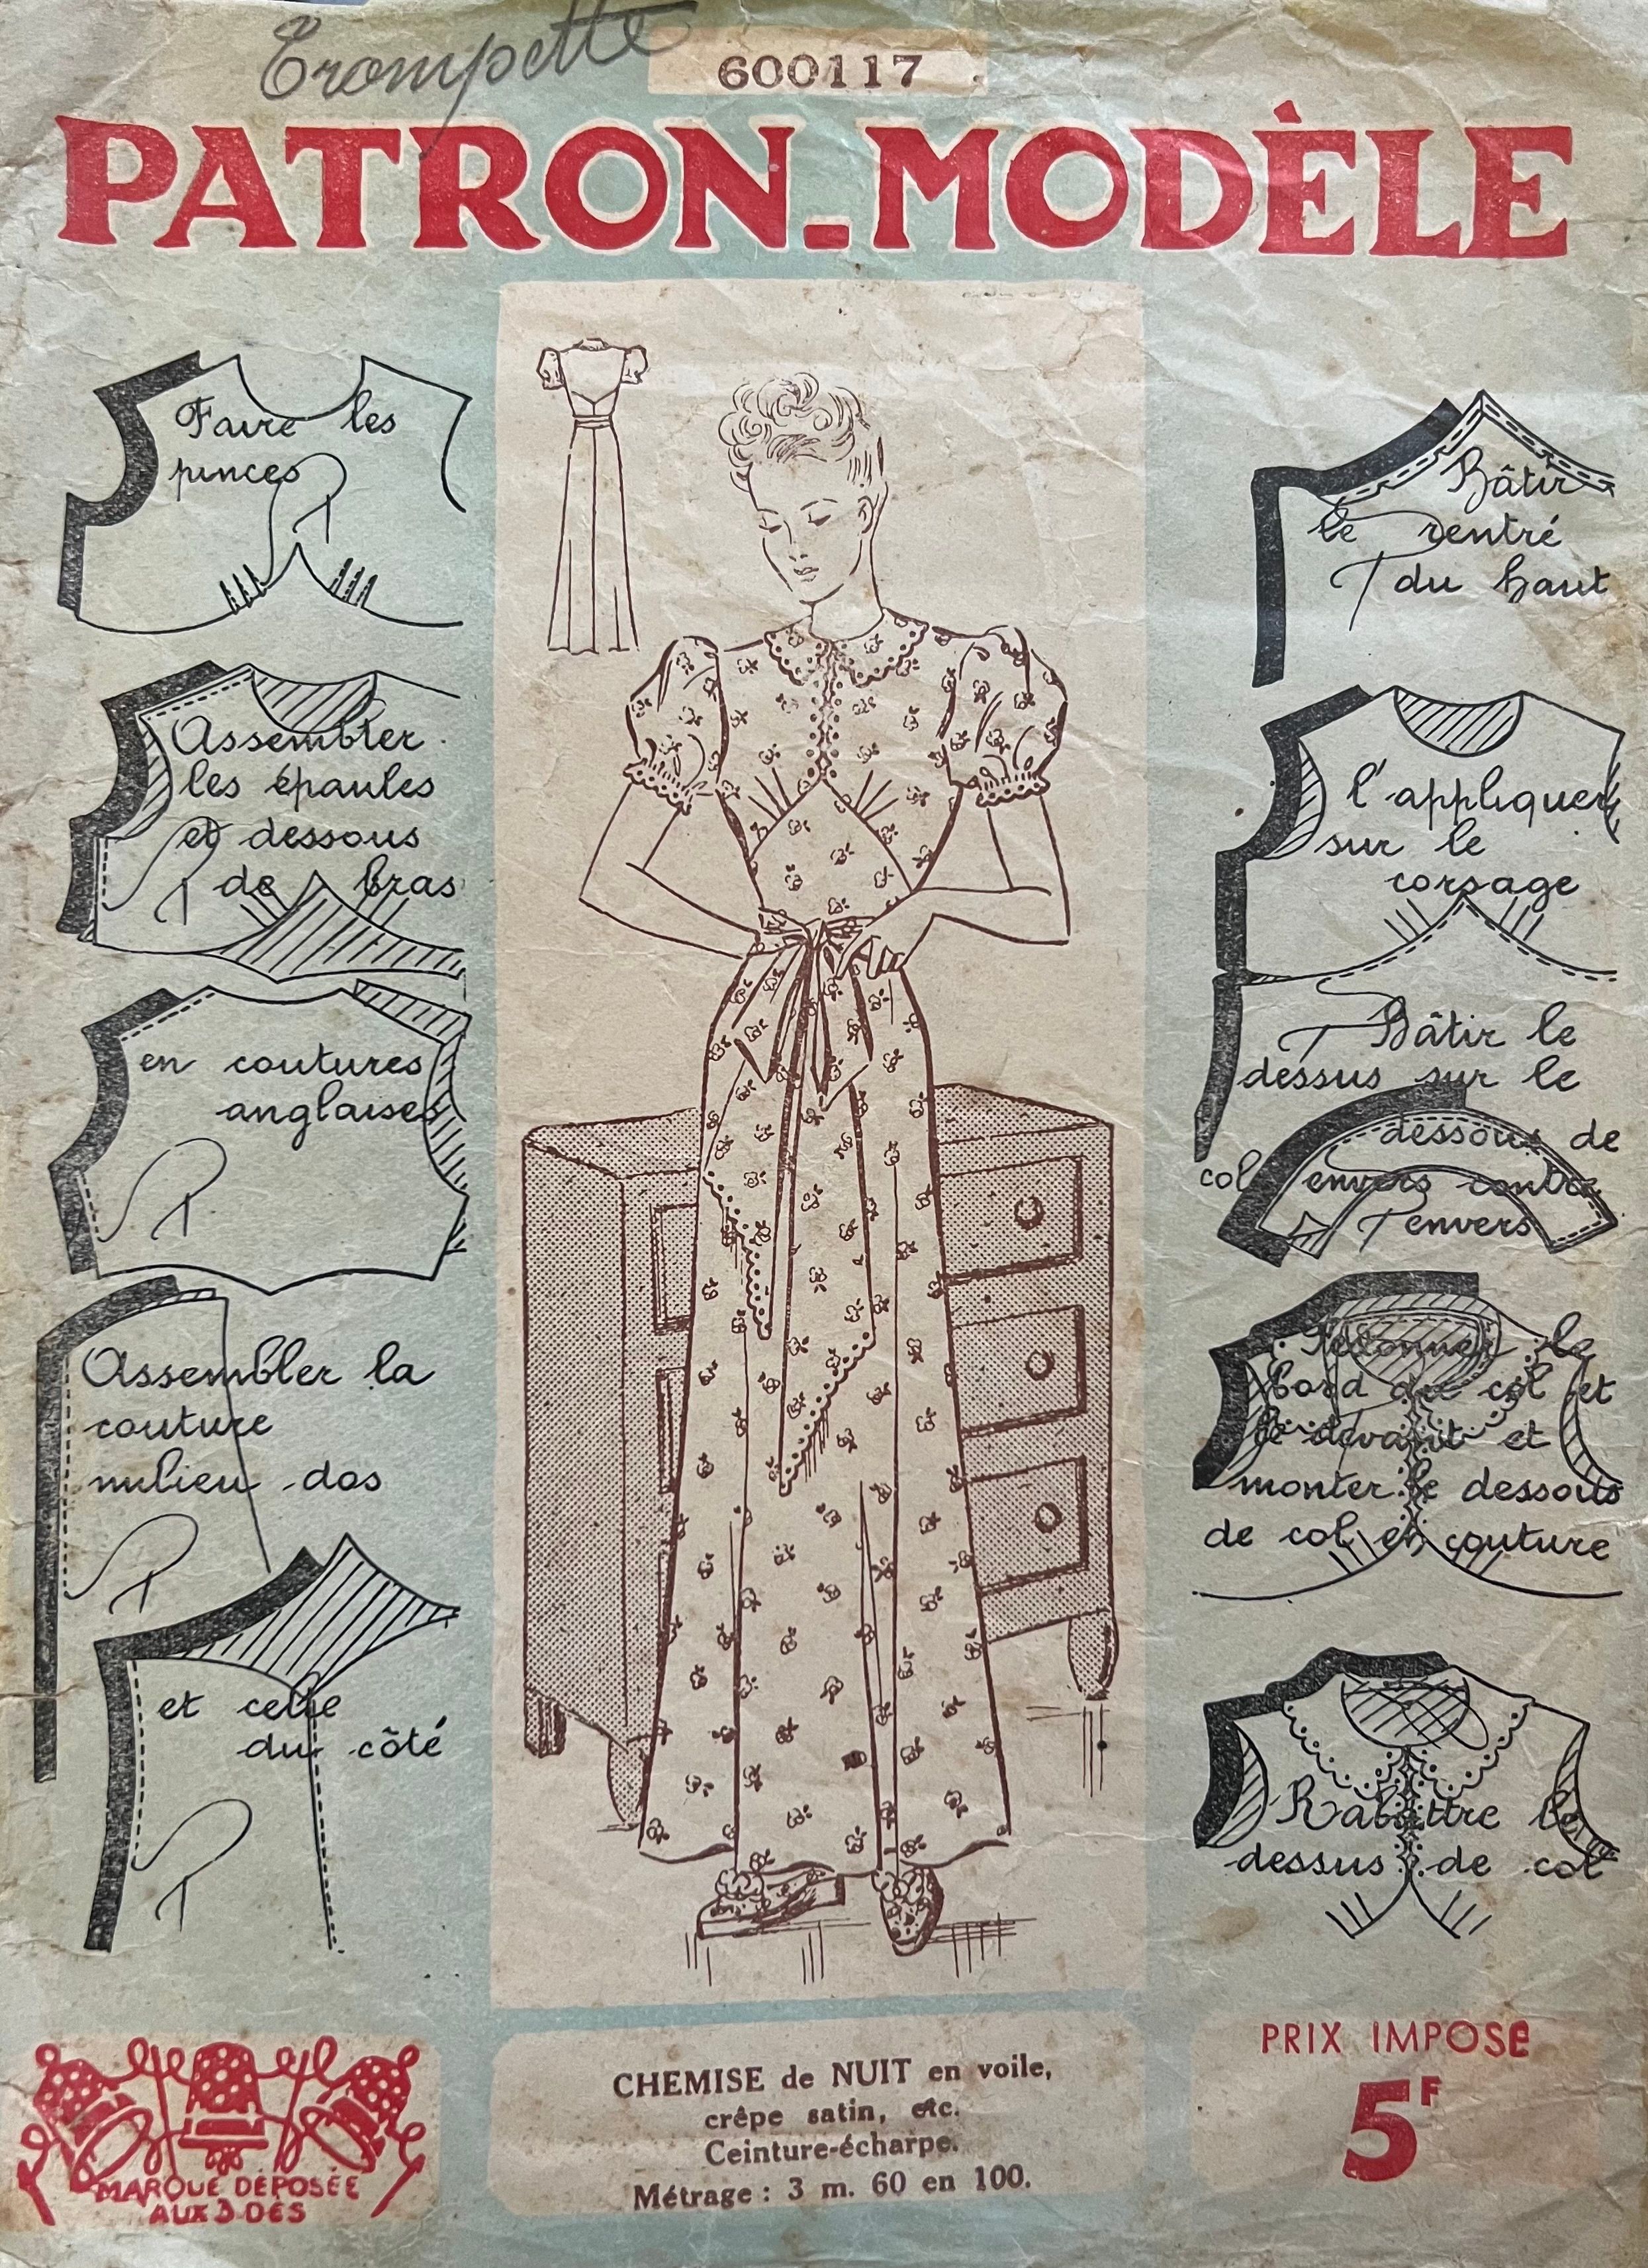 Trompette
600117
PATRON-MODÈLE
Faire les
pinces
Assembler
les épaules
et dessous
de bras
en coutures
anglaises
Assembler la
couture
milieu dos
et celle
du côté
Bâtir
le rentré
du haut
l'appliquer
sur le
corsage
Bâtir le
dessus sur le
dessous de
col envers contre
envers
Festonner le
bord du col et
le devant et
monter le dessous
de col en couture
Rabattre le
dessus de col
MARQUE DÉPOSÉE
AUX 3 DÉS
CHEMISE de NUIT en voile,
crêpe satin, etc.
Ceinture-écharpe.
Métrage : 3 m. 60 en 100.
PRIX IMPOSÉ
5F